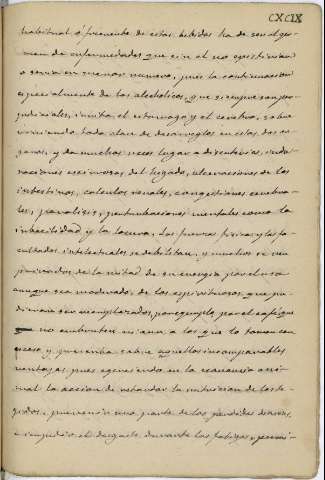 CXCIX
habitual ó frecuente de estas bebidas ha de ser el ger-
men de enfermedades que sin el uso
ó serian en menor numero, pues la continuacion
especialmente de los alcoholicos, que siempre son per-
judiciales, irrita el estomago y el cerebro, sobre
viniendo toda clase de desarreglos en estos dos or-
ganos, y da muchas veces lugar a disenterias, indu-
raciones escirrosas del higado, ulceraciones de los
intestinos, calculos renales, congestiones cerebra-
les, paralisis, perturbaciones mentales como la
imbecilidad y la locura. Las fuerzas fisicas y las fa-
cultades intelectuales se debilitan, y muchos se ven
privados de la mitad de su energia por el uso
aunque sea moderado, de los espirituosos, que pu-
dieran ser reemplazados, por ejemplo, por el cafe que
no embrutece ni aun a los que lo toman con
exceso y que reune sobre aquellos incomparables
ventajas, pues ejerciendo en la economia ani-
mal la accion de retardar la nutricion de los te-
gidos, previene una parte de las perdidas
é impide el desgaste durante las fatigas y permi-